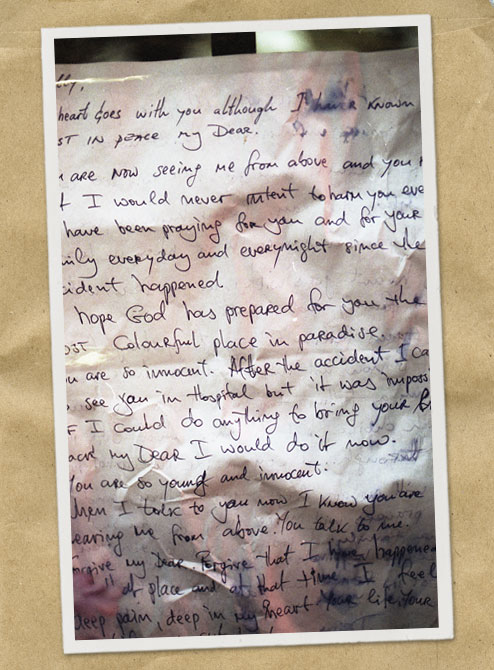 lly,
heart goes with you although I have known
ST IN peace my Dear.
are now seeing me from above and you
I would never intent to harm you eve
have been praying for you and for your
mily everyday and everynight since the
cident happened.
hope God has prepared for you the
ost Colourful place in paradise.
u are so innocent. After the accident I ca
see you in Hospital but it was imposs
F I could do anything to bring your
ack my Dear I would do it now.
You are so young and innocent.
hen I talk to you now I know you are
earing me from above. You talk to me.
orgive my Dear. Forgive that I have happened
at place and at that time. I feel
deep pain, deep in my heart. Your life, Your